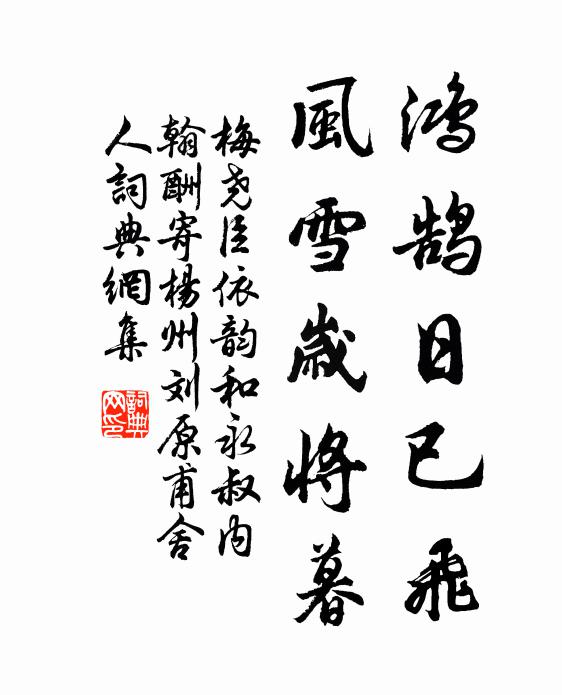 鴻鵠日已飛
風雪歲將暮
梅堯臣依韵和永叔内
翰酬寄楊州刘原甫舍
人詞典網集
詞典
网印